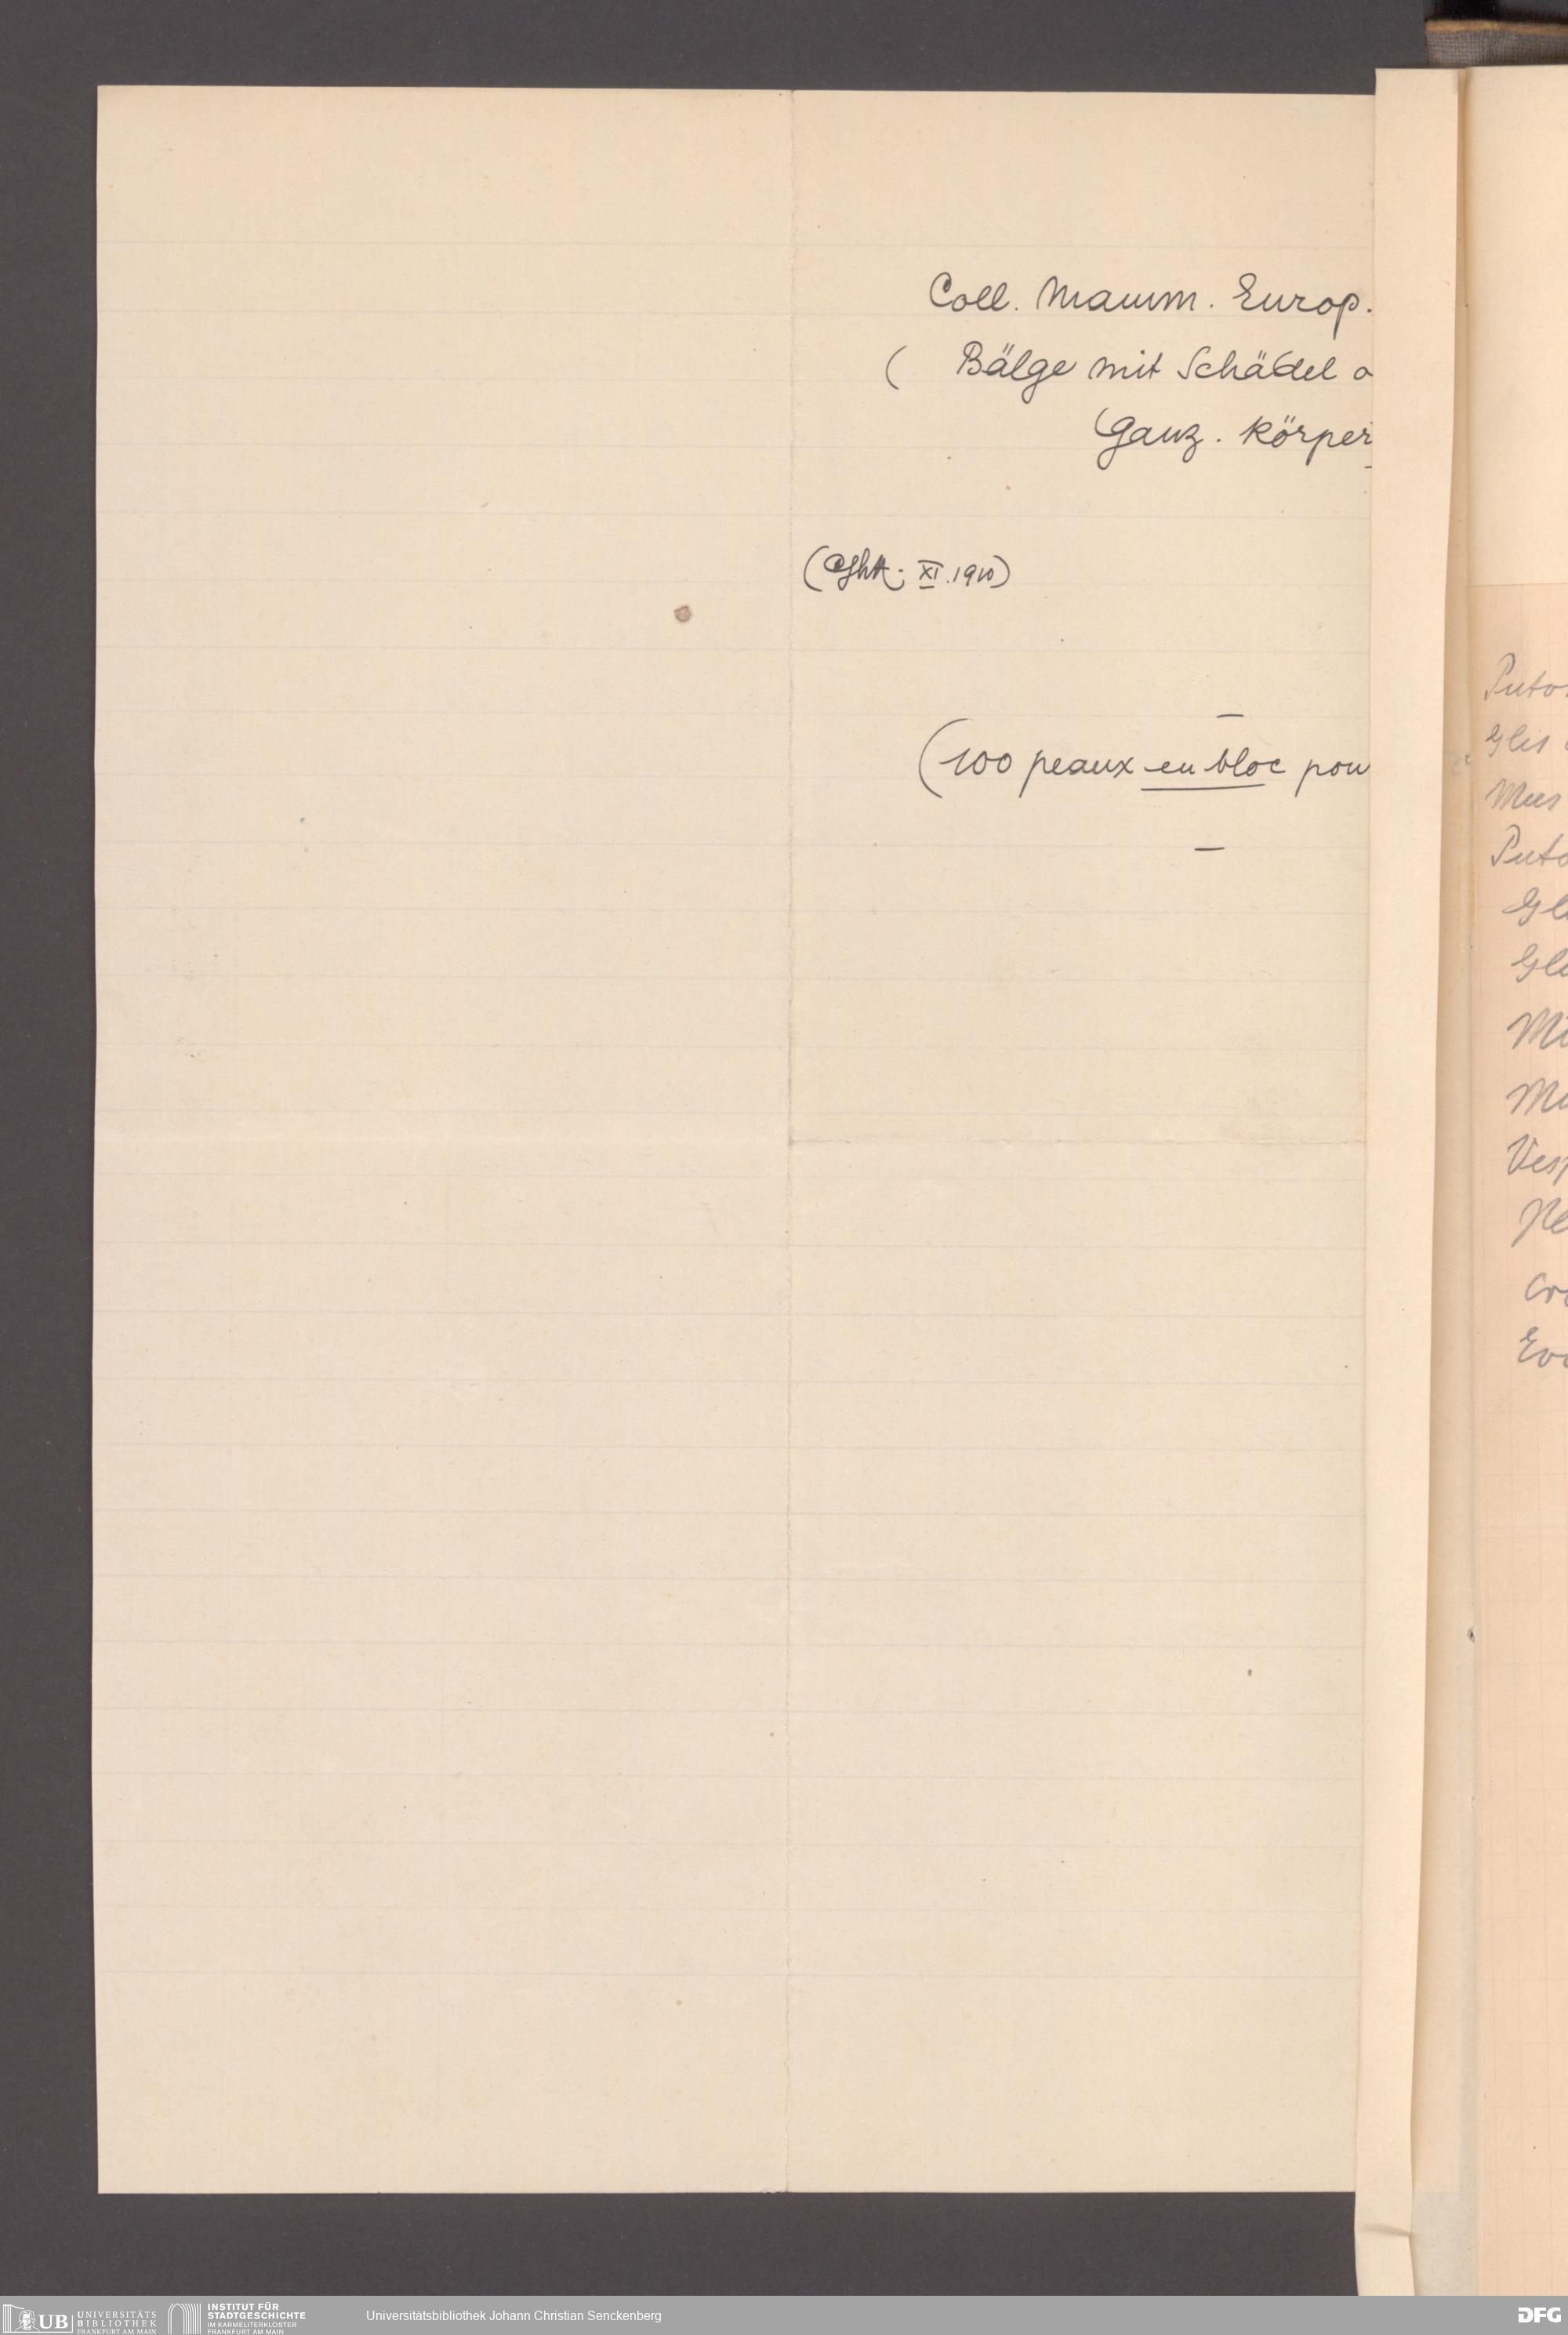 Coll. Mamm. Europ.
( Bälge mit Schädel o
Ganz. Körper
( XI. 1910)
(100 peaux en bloc pou
Puto
Glis
Mus
Puto
Gl
Gl
M
M
Ves
Cr
Evo
UB UNIVERSITÄTS BIBLIOTHEK FRANKFURT AM MAIN
INSTITUT FÜR STADTGESCHICHTE IM KARMELITERKLOSTER FRANKFURT AM MAIN
Universitätsbibliothek Johann Christian Senckenberg
DFG